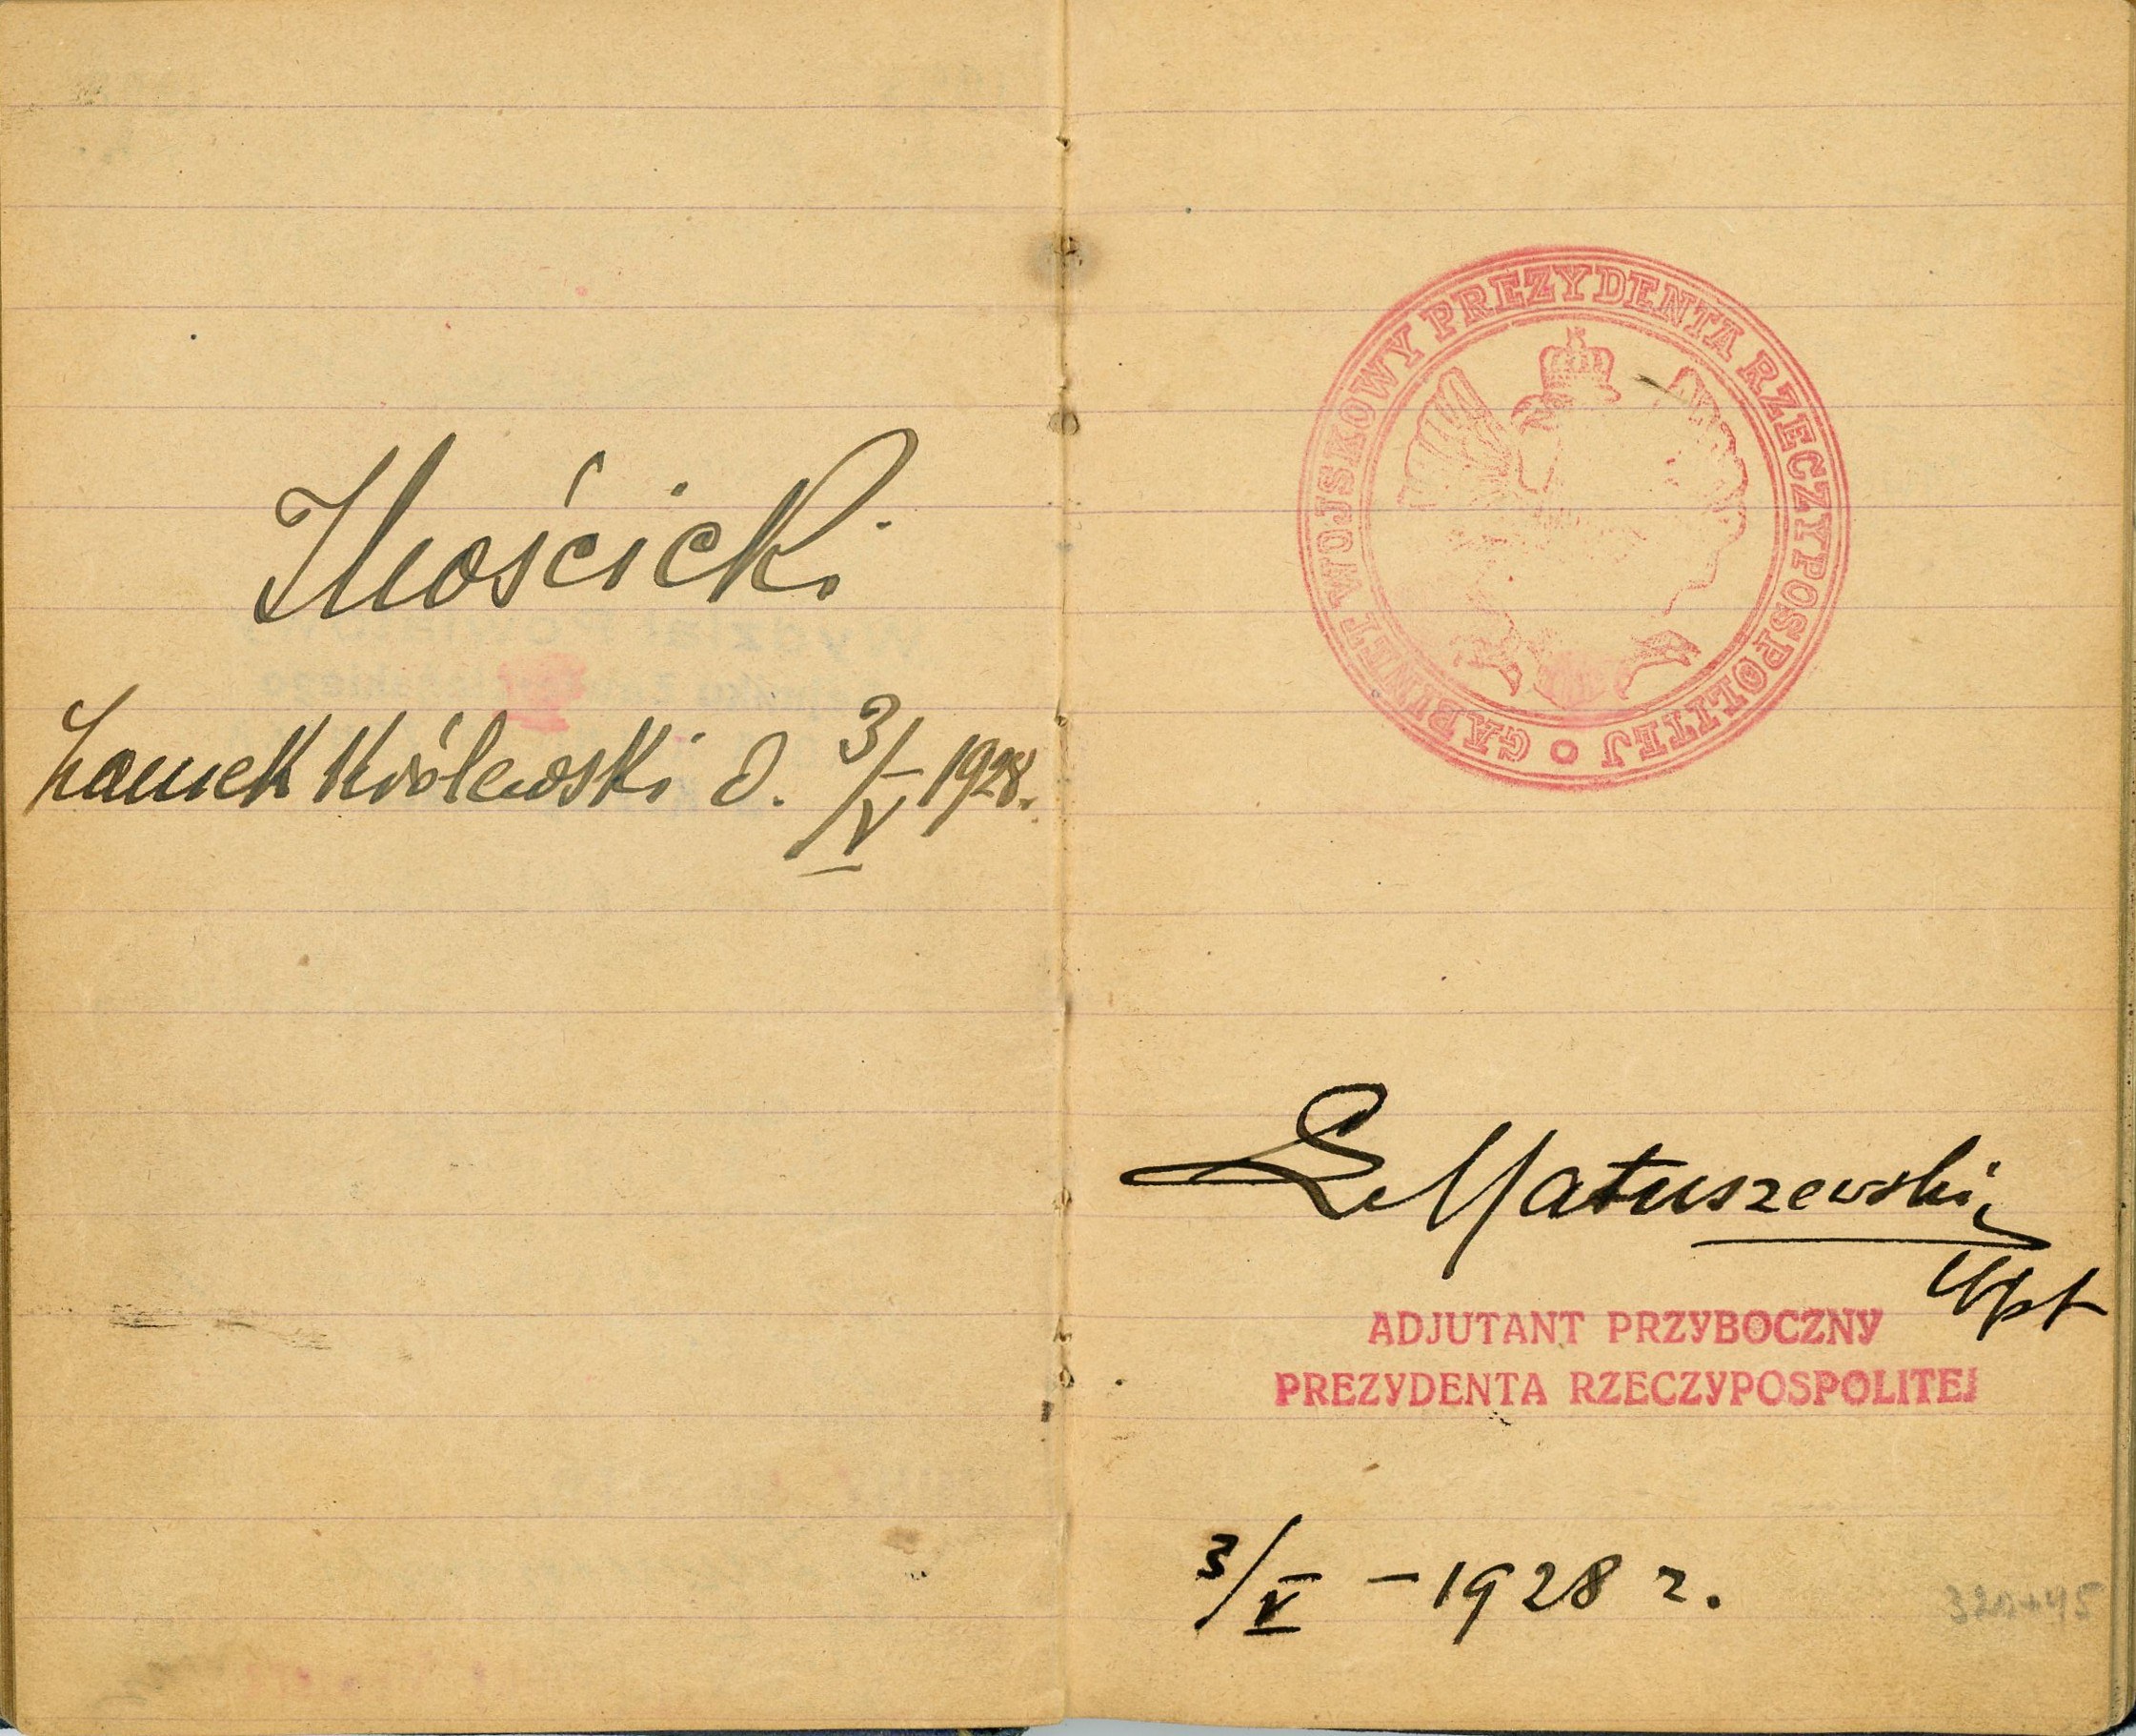 IMościcki
Zamek Królewski d. 3/V 1928.
GABINET WOJSKOWY PREZYDENTA RZECZYPOSPOLITEJ
Matuszewski
kpt
ADJUTANT PRZYBOCZNY
PREZYDENTA RZECZYPOSPOLITEJ
3/V - 1928 r.